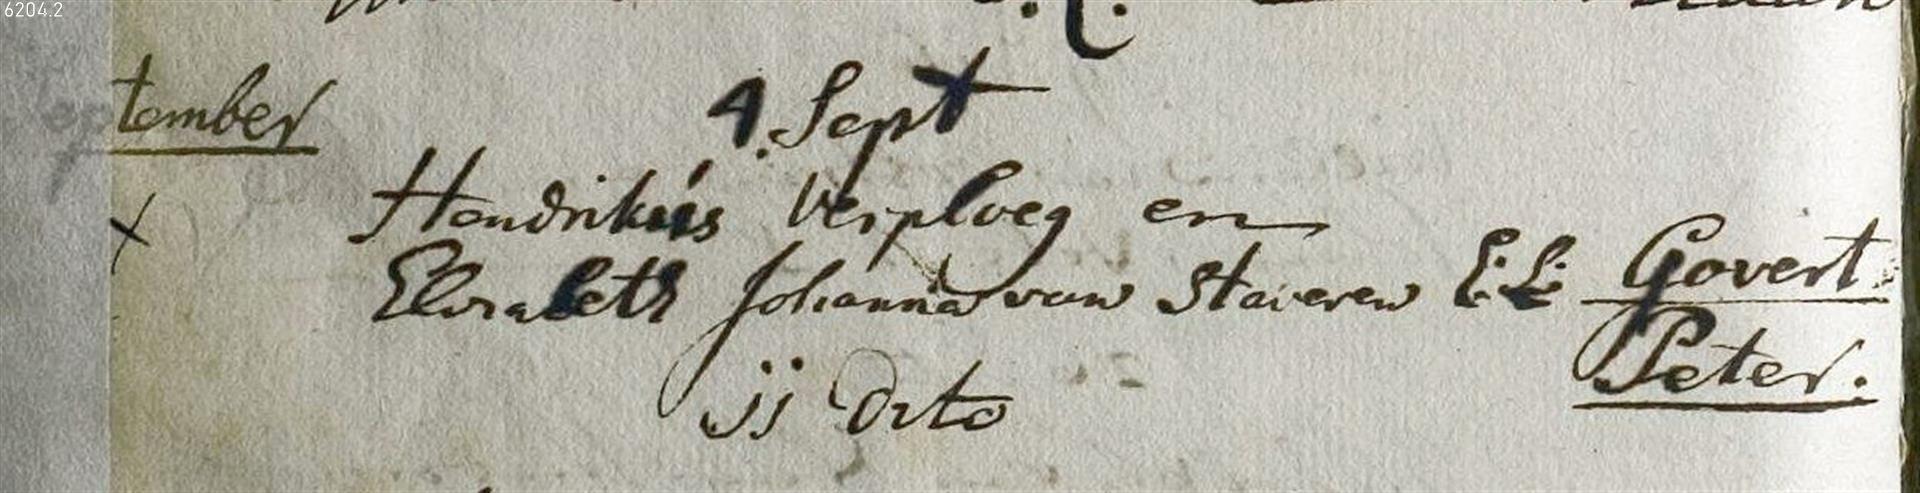 6204.2
tember
4. Sept
Hendrikus Verploeg en
Elizabeth Johanna van Staveren E.L. Govert
Peter.
jj dito